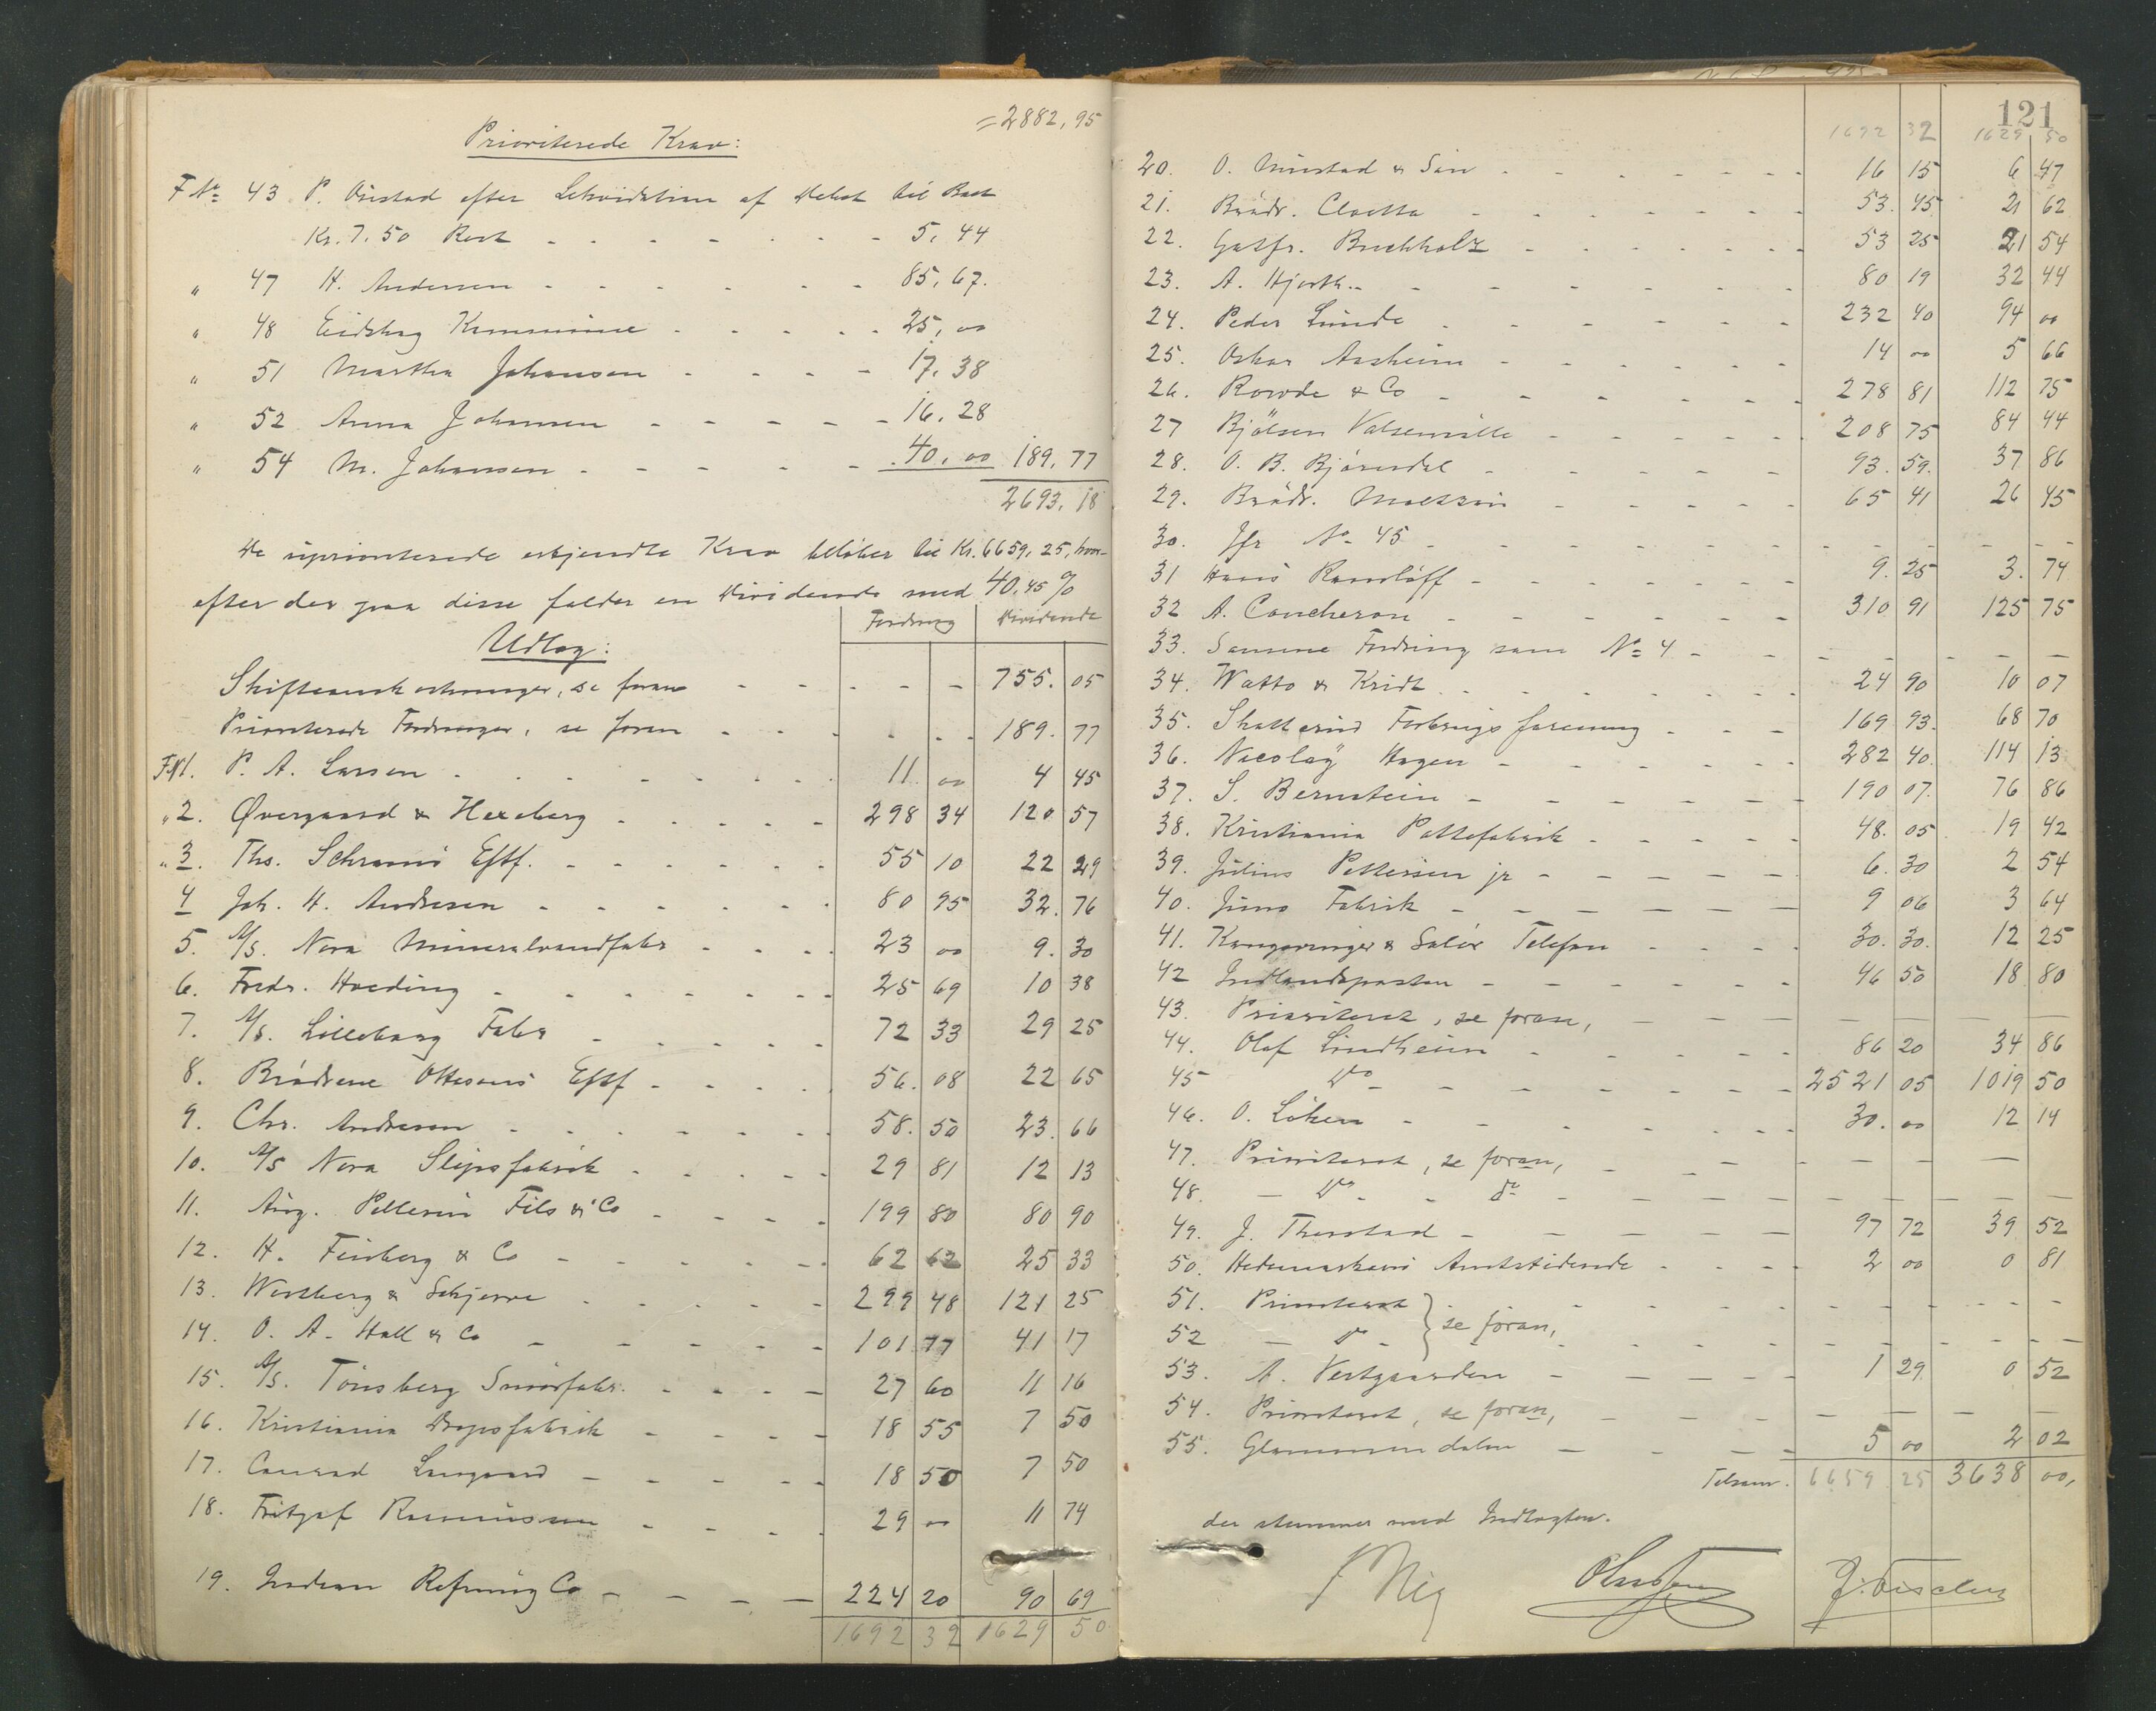 = 2882,95
Prioriterede Krav:
F No 43 P. Ørstad efter Lekvidation af Debet til Boet
Kr. 7.50 Rest - - - - - - 5,44
" 47 H. Andersen - - - - - 85,67.
" 48 Eidskog Kommune - - - - 25,00
" 51 Martha Johansen - - - - 17,38
" 52 Anna Johansen - - - - - 16,28
" 54 M. Johansen - - - - - 40,00 189,77
2693,18
De uprioriterede erkjendte Krav beløber til Kr. 6659,25, hvor-
efter der paa disse falder en Dividende med 40,45 %
Udlæg: Fordring Dividende
Skifteomkostninger, se foran - - - - - 755.05
Prioriterede Fordringer, se foran - - - - - 189.77
FN1. P. A. Larsen - - - - 11 00 4 45
" 2. Øvergaard & Hexeberg - - - - 298 34 120 57
" 3. Ths. Schrams Eftf. - - - - 55 10 22 29
4 Joh. H. Andresen - - - - 80 95 32.76
5. A/S. Nora Mineralvandfabr - - - 23 00 9.30
6. Fredr. Hoeding - - - - 25 69 10 38
7. A/S. Lilleborg Fabr - - - - 72 33 29 25
8. Brødrene Ottesens Eftf - - - 56.08 22 65
9. Chr. Andresen - - - - 58.50 23.66
10. A/S Nora Slipsfabrik - - - 29 81 12 13
11. Aug. Pellerin Fils & Co - - - 199 80 80 90
12. H. Feinberg & Co - - - - 62 62 25 33
13. Westberg & Schjerve - - - - 299 48 121 25
14. O. A. Hall & Co - - - - 101 77 41 17
15. A/S. Tönsberg Smörfabr. - - - 27 60 11 16
16. Kristiania Dropsfabrik - - - 18 55 7 50
17. Conrad Langaard - - - - 18 50 7 50
18. Fritjof Rasmussen - - - - 29 00 11 74
19. Indian Refining Co - - - - 224 20 90 69
1692 32 1629 50
121
1692 32 1629 50
20. O. Mustad & Sön - - - - 16 15 6 47
21. Brødr. Cloetta - - - - 53.45 21 62
22. Gutfr. Buchholz - - - - 53 25 21 54
23. A. Hjorth - - - - 80 19 32 44
24. Peder Lunde - - - - 232 40 94 00
25. Oskar Aasheim - - - - 14 00 5 66
26. Rowde & Co - - - - 278 81 112 75
27 Bjölsen Valsemölle - - - - 208 75 84 44
28. O. B. Björndal - - - - 93.59. 37 86
29. Brødr. Moltzau - - - - 65 41 26 45
30. Jfr No 45 - - - -
31 Hans Ramlöff - - - - 9.25 3.74
32 A. Coucheron - - - - 310 91 125 75
33. Samme Fordring som No 4 - - - -
34. Watto & Kridt - - - - 24 90 10 07
35. Skotterud Forbrugsforening - - - 169 93. 68 70
36. Nicolay Hagen - - - - 282 40. 114 13
37. S. Bernstein - - - - 190 07. 76 86
38. Kristiania Pottefabrik - - - - 48.05 19 42
39. Julius Pettersen jr - - - - 6.30 2 54
40. Juno Fabrik - - - - 9 06 3 64
41. Kongsvinger & Solör Telefon - - - 30.30. 12 25
42 Indlandsposten - - - - 46 50 18 80
43. Prioriteret, se foran, - - - -
44. Olaf Lindheim - - - - 86 20 34 86
45 Do - - - - 2521 05 1019 50
46. O. Löken - - - - 30.00 12 14
47. Prioriteret, se foran, - - - -
48. - Do - - do - - - -
49. J. Thorstad - - - - 97 72 39 52
50. Hedemarkens Amtstidende - - - 2 00 0 81
51. Prioriteret } se foran,
52 - Do -
53. A. Vestgaarden - - - - 1 29 0 52
54. Prioriteret, se foran, - - - -
55. Glommendalen - - - - 5 00 2 02
Tilsam. 6659 25 3638 00,
der stemmer med Indtægten.